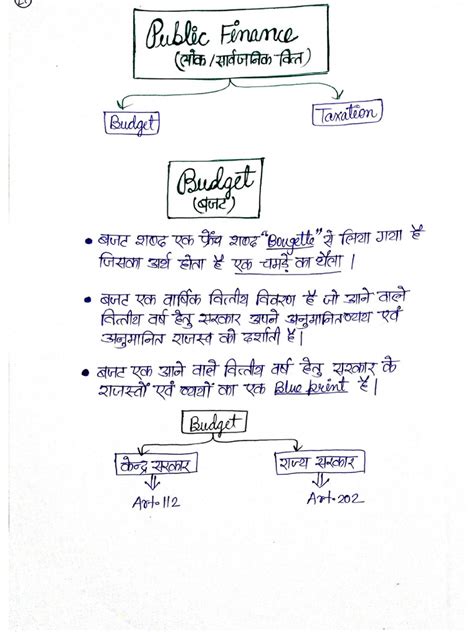 Public Finance
(लोक/सार्वजनिक वित्त)
Budget
Taxation
Budget
(बजट)
• बजट शब्द एक फ्रेंच शब्द "Bougette" से लिया गया है
जिसका अर्थ होता है एक चमड़े का थैला।
• बजट एक वार्षिक वित्तीय विवरण है जो आने वाले
वित्तीय वर्ष हेतु सरकार अपने अनुमानित व्यय एवं
अनुमानित राजस्व को दर्शाती है।
• बजट एक आने वाले वित्तीय वर्ष हेतु सरकार के
राजस्वों एवं व्ययों का एक Blue print है।
Budget
केन्द्र सरकार
राज्य सरकार
Art.112
Art.202